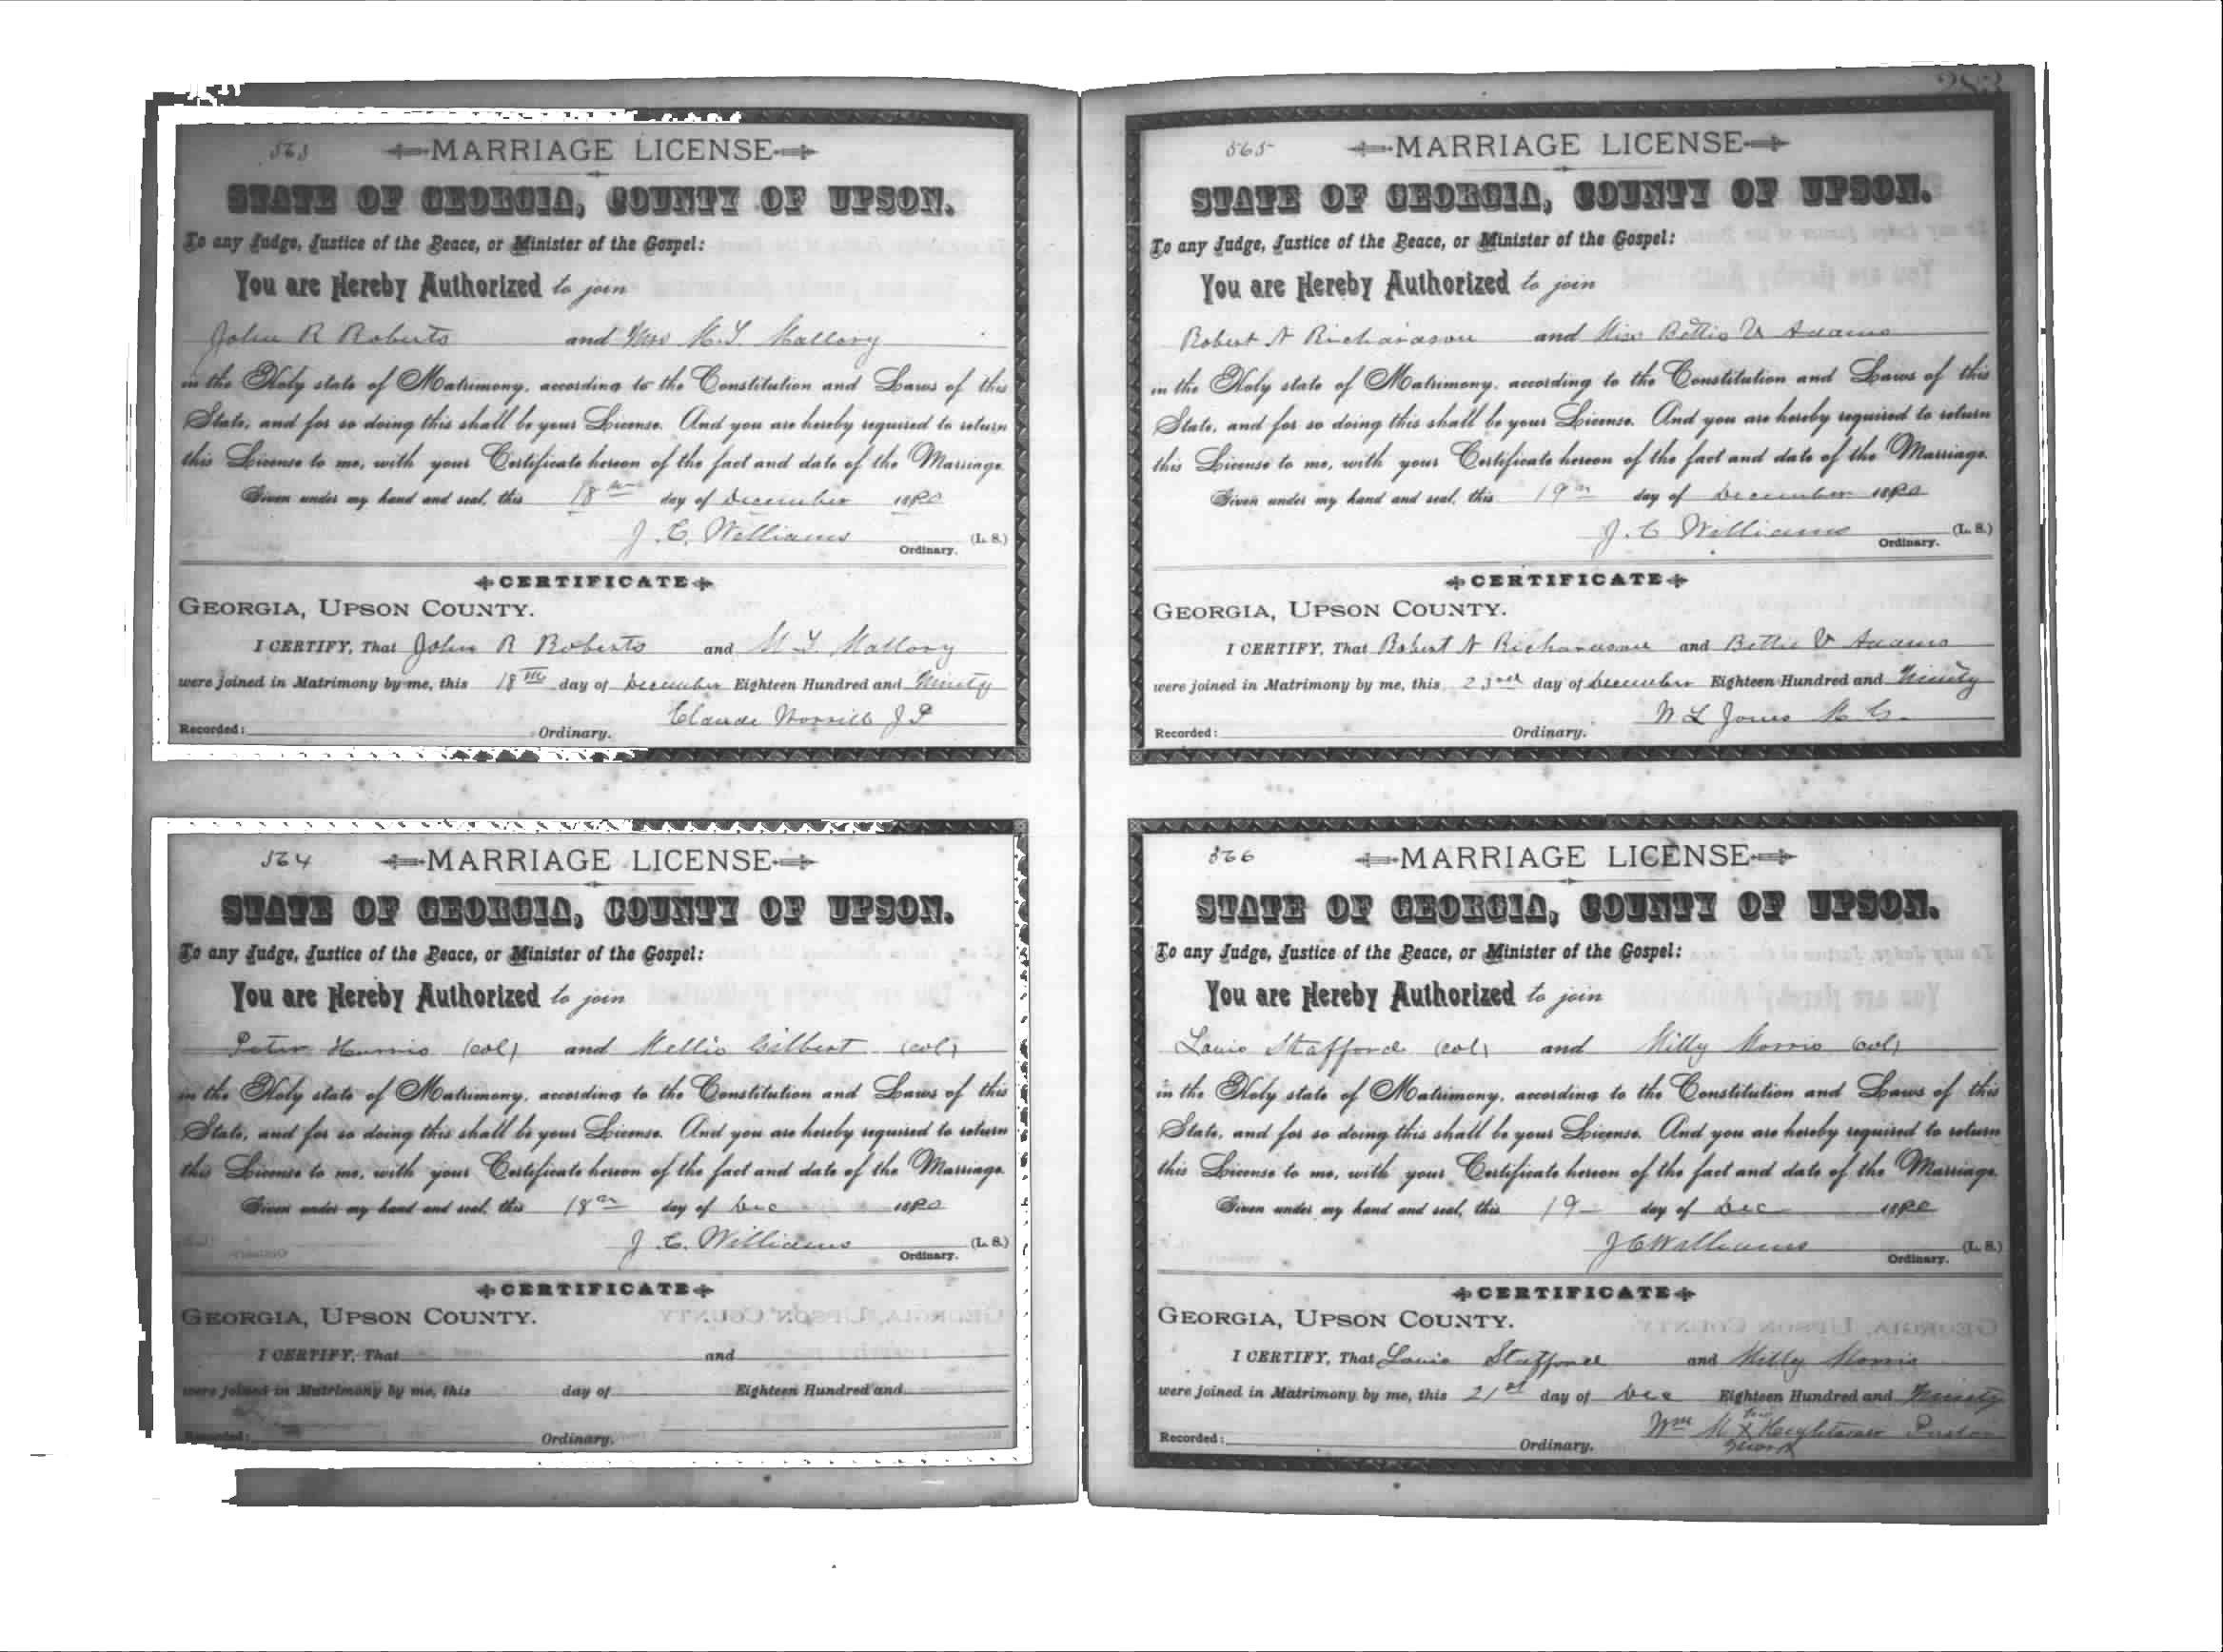 563
MARRIAGE LICENSE
STATE OF GEORGIA, COUNTY OF UPSON.
To any Judge, Justice of the Peace, or Minister of the Gospel:
You are Hereby Authorized to join
John R Roberts and M. Y. Mallory
in the Holy state of Matrimony, according to the Constitution and Laws of this
State, and for so doing this shall be your License. And you are hereby required to return
this License to me, with your Certificate hereon of the fact and date of the Marriage.
Given under my hand and seal, this 18 day of December 1890
J. C. Williams (L. S.)
Ordinary.
CERTIFICATE
GEORGIA, UPSON COUNTY.
I CERTIFY, That John R Roberts and M Y Mallory
were joined in Matrimony by me, this 18th day of December Eighteen Hundred and Ninety
Claude Worrill J P
Recorded: Ordinary.
564
MARRIAGE LICENSE
STATE OF GEORGIA, COUNTY OF UPSON.
To any Judge, Justice of the Peace, or Minister of the Gospel:
You are Hereby Authorized to join
Peter Harris (col) and Mellie Gilbert (col)
in the Holy state of Matrimony, according to the Constitution and Laws of this
State, and for so doing this shall be your License. And you are hereby required to return
this License to me, with your Certificate hereon of the fact and date of the Marriage.
Given under my hand and seal, this 18 day of Dec 1890
J. C. Williams (L. S.)
Ordinary.
CERTIFICATE
GEORGIA, UPSON COUNTY.
I CERTIFY, That and
were joined in Matrimony by me, this day of Eighteen Hundred and
Recorded: Ordinary.
283
565
MARRIAGE LICENSE
STATE OF GEORGIA, COUNTY OF UPSON.
To any Judge, Justice of the Peace, or Minister of the Gospel:
You are Hereby Authorized to join
Robert A Richardson and Miss Bettie V Adams
in the Holy state of Matrimony, according to the Constitution and Laws of this
State, and for so doing this shall be your License. And you are hereby required to return
this License to me, with your Certificate hereon of the fact and date of the Marriage.
Given under my hand and seal, this 19 day of December 1890
J. C Williams (L. S.)
Ordinary.
CERTIFICATE
GEORGIA, UPSON COUNTY.
I CERTIFY, That Robert A Richardson and Bettie V Adams
were joined in Matrimony by me, this 23rd day of December Eighteen Hundred and Ninety
W L Jones M. G.
Recorded: Ordinary.
566
MARRIAGE LICENSE
STATE OF GEORGIA, COUNTY OF UPSON.
To any Judge, Justice of the Peace, or Minister of the Gospel:
You are Hereby Authorized to join
Louis Stafford (col) and Milly Morris (col)
in the Holy state of Matrimony, according to the Constitution and Laws of this
State, and for so doing this shall be your License. And you are hereby required to return
this License to me, with your Certificate hereon of the fact and date of the Marriage.
Given under my hand and seal, this 19 day of Dec 1890
J C Williams (L. S.)
Ordinary.
CERTIFICATE
GEORGIA, UPSON COUNTY.
I CERTIFY, That Louis Stafford and Milly Morris
were joined in Matrimony by me, this 21st day of Dec Eighteen Hundred and Ninety
his
Wm M X Hightower Pastor
mark
Recorded: Ordinary.